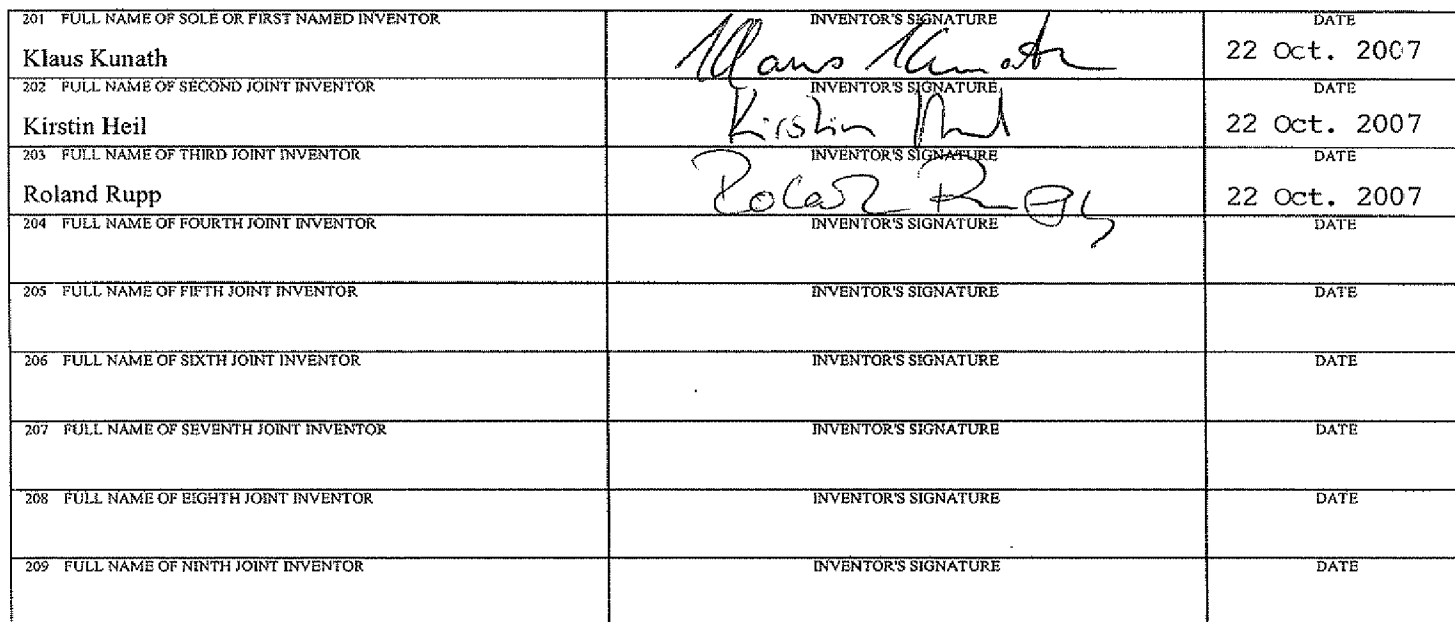 201 FULL NAME OF SOLE OR FIRST NAMED INVENTOR INVENTOR'S SIGNATURE DATE
Klaus Kunath Klaus Kunath 22 Oct. 2007
202 FULL NAME OF SECOND JOINT INVENTOR INVENTOR'S SIGNATURE DATE
Kirstin Heil Kirstin Heil 22 Oct. 2007
203 FULL NAME OF THIRD JOINT INVENTOR INVENTOR'S SIGNATURE DATE
Roland Rupp Roland Rupp 22 Oct. 2007
204 FULL NAME OF FOURTH JOINT INVENTOR INVENTOR'S SIGNATURE DATE
205 FULL NAME OF FIFTH JOINT INVENTOR INVENTOR'S SIGNATURE DATE
206 FULL NAME OF SIXTH JOINT INVENTOR INVENTOR'S SIGNATURE DATE
207 FULL NAME OF SEVENTH JOINT INVENTOR INVENTOR'S SIGNATURE DATE
208 FULL NAME OF EIGHTH JOINT INVENTOR INVENTOR'S SIGNATURE DATE
209 FULL NAME OF NINTH JOINT INVENTOR INVENTOR'S SIGNATURE DATE